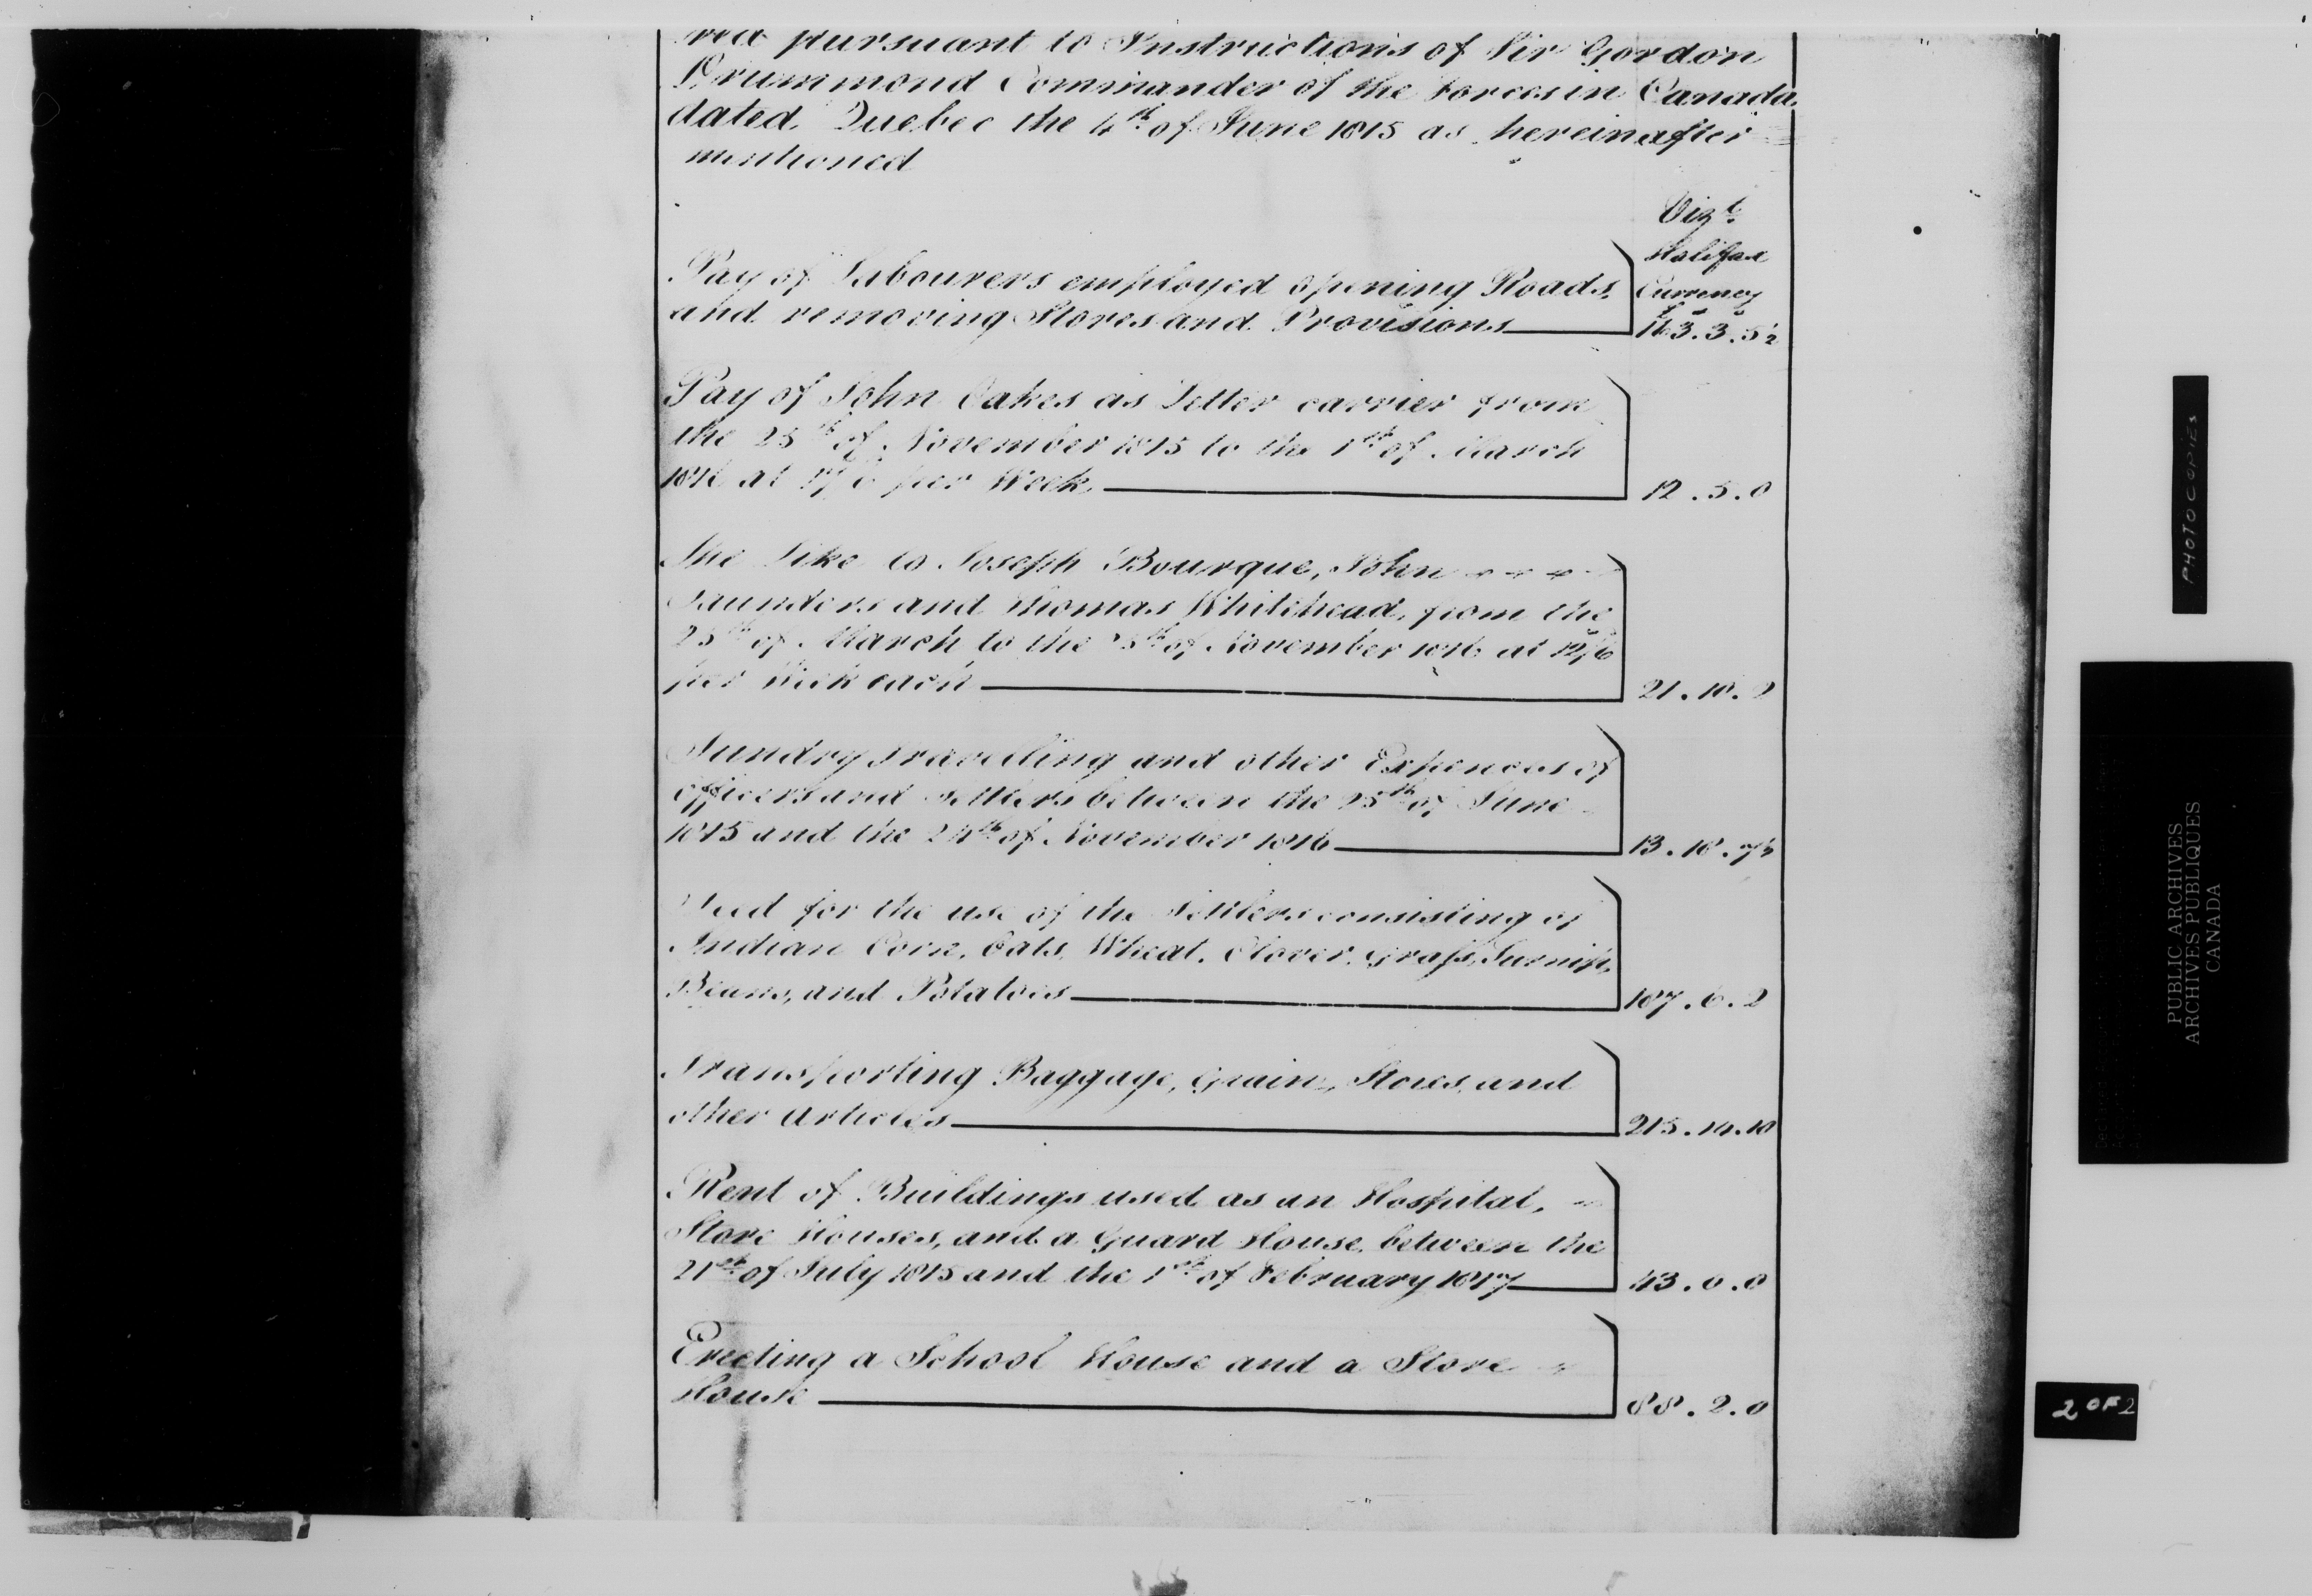 red pursuant to Instructions of Sir Gordon
Drummond Commander of the Forces in Canada
dated Quebec the 4th of June 1815 as hereinafter
mentioned
Vizt
Halifax
Currency
£ s d
Pay of Labourers employed opening Roads,
and removing Stores and Provisions 163.3.5½
Pay of John Oakes as Letter carrier from
the 25th of November 1815 to the 1st of March
1816 at per Week 12.5.0
The Like to Joseph Bourque, John
Saunders and Thomas Whitehead, from the
25th of March to the of November 1816 at 12/6
per Week each 21.10.
Sundry Travelling and other Expences of
Officers and Settlers between the 25th of June
1815 and the 24th of November 1816 13.18.7½
Seed for the use of the Settlers consisting of
Indian Corn, Oats, Wheat, Clover, Grass, Turnip,
Beans, and Potatoes 187.6.2
Transporting Baggage, Grain, Stores, and
other Articles 215.14.10
Rent of Buildings used as an Hospital,
Store Houses, and a Guard House, between the
21st of July 1815 and the 1st of February 1817 43.0.0
Erecting a School House and a Store
House 88.2.0
PHOTOCOPIES
PUBLIC ARCHIVES
ARCHIVES PUBLIQUES
CANADA
2 OF 2